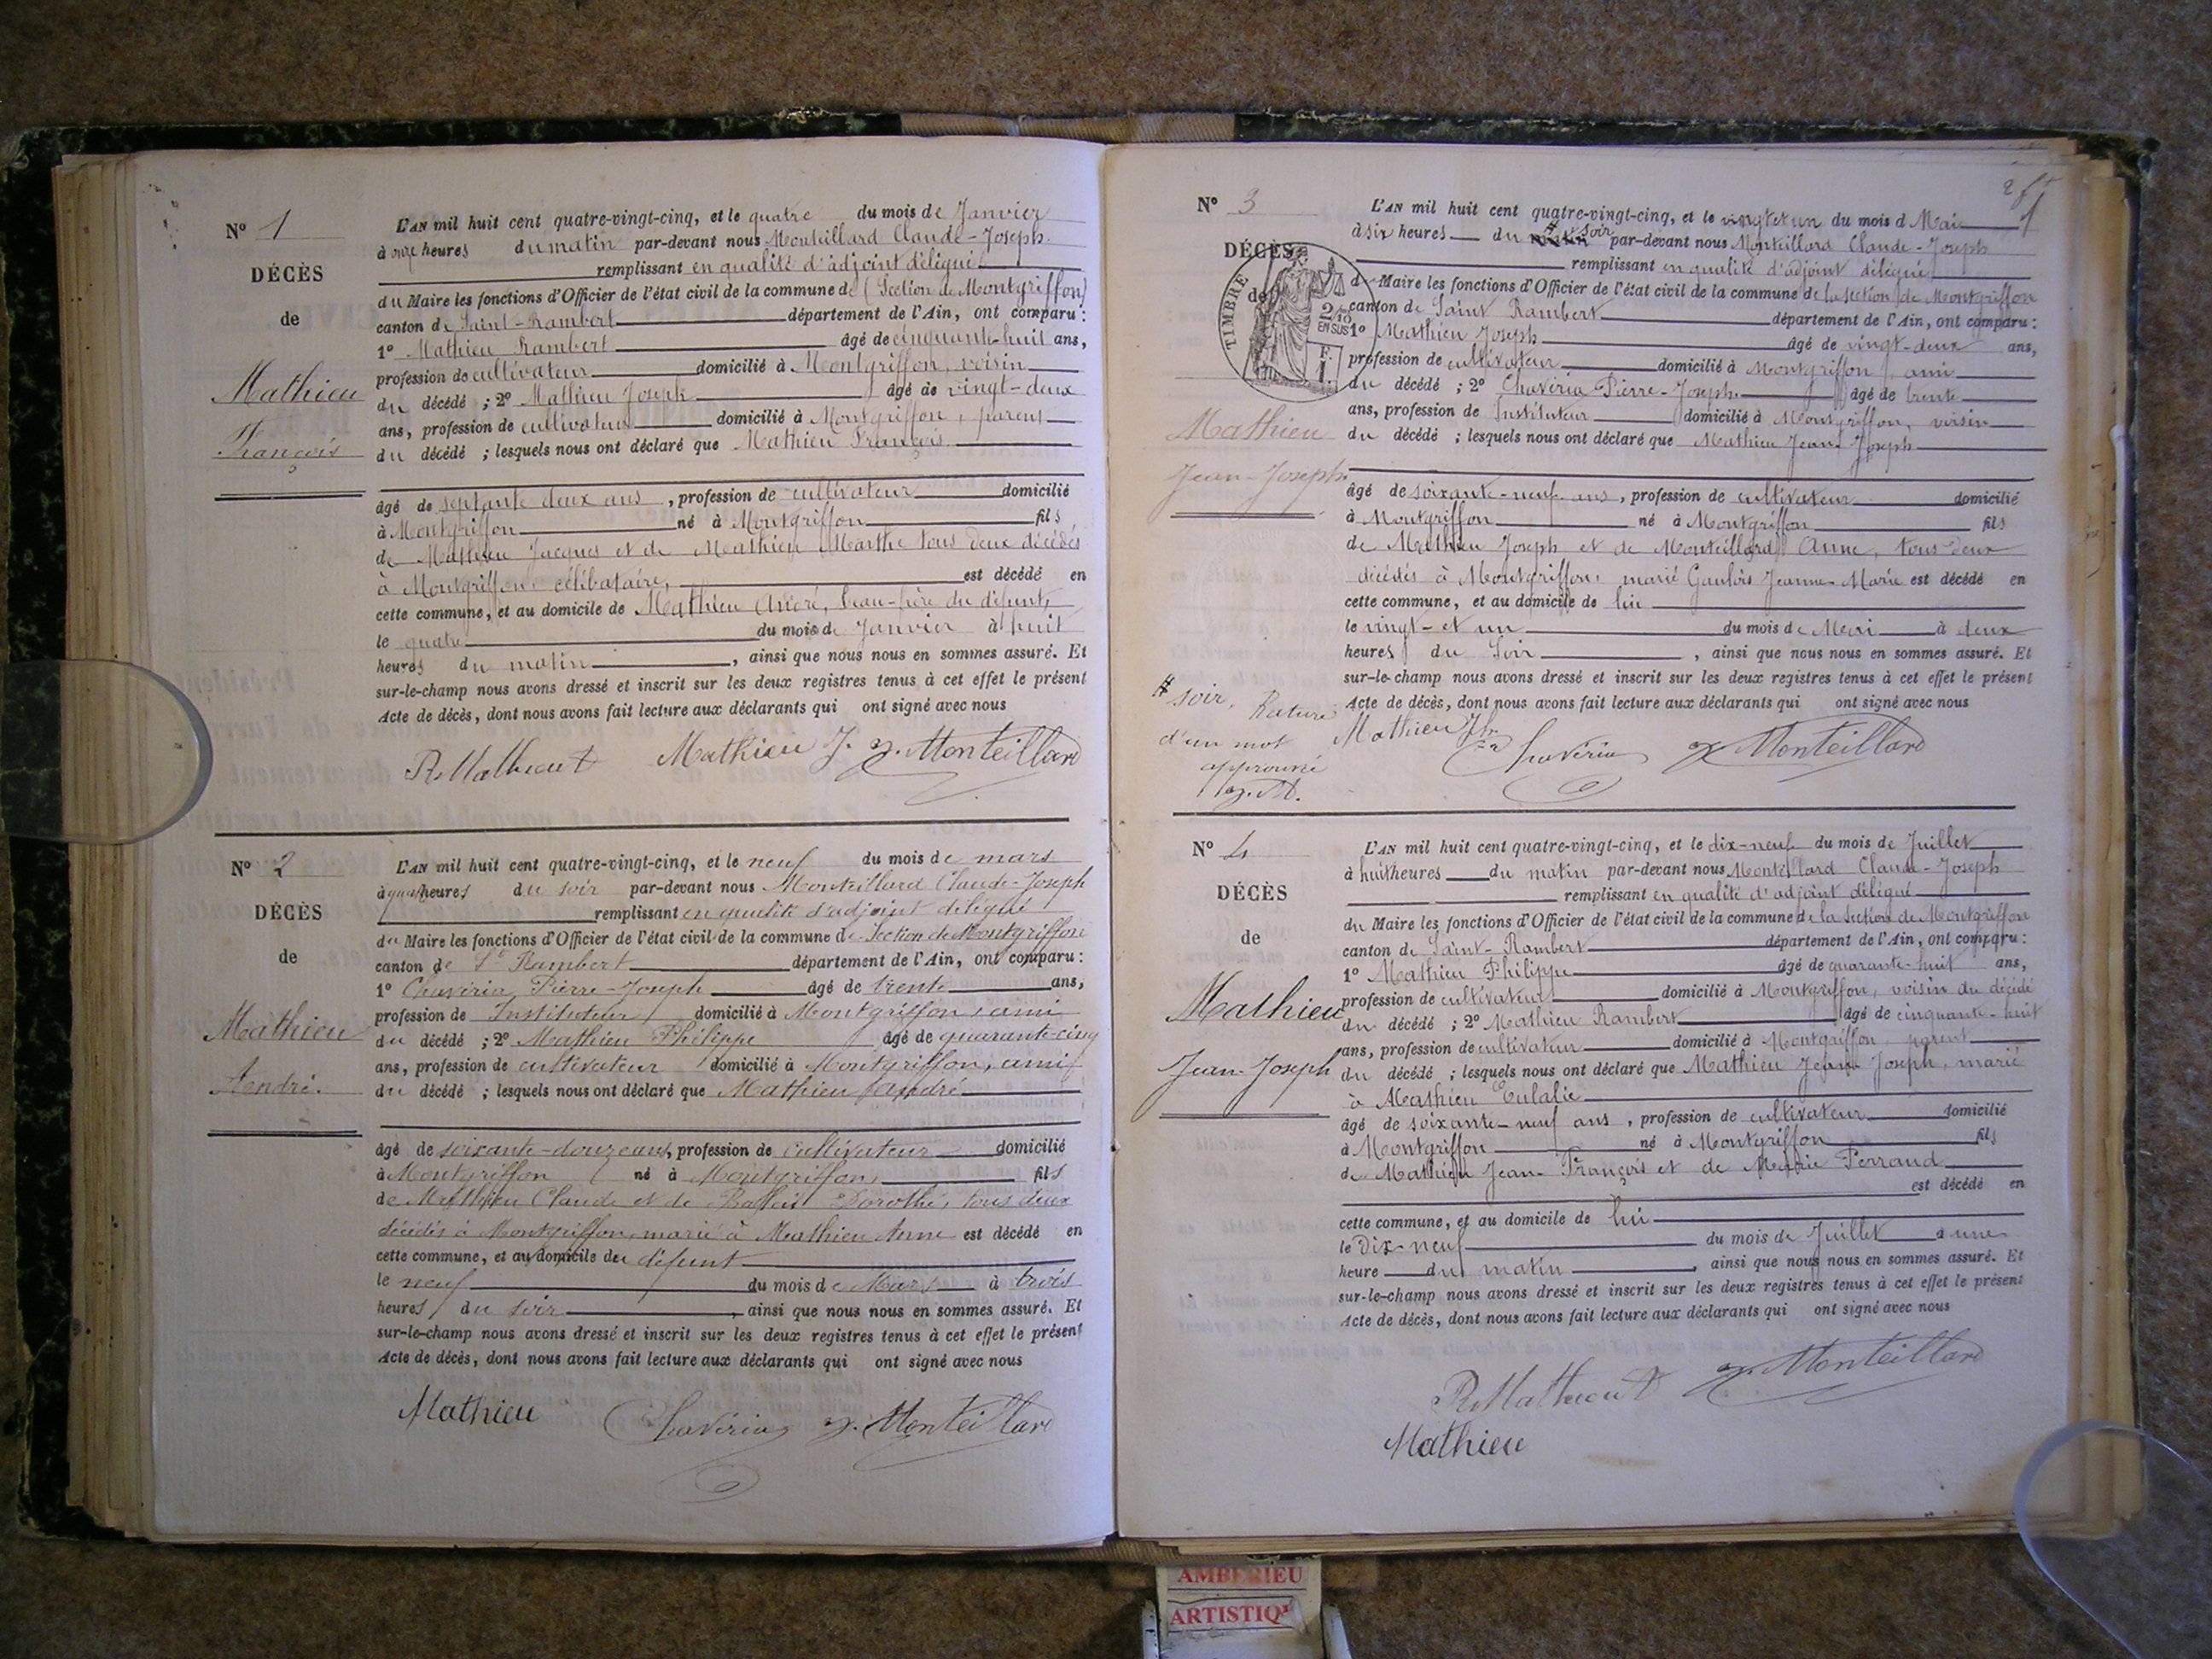 N° 1
DÉCÈS
de
Mathieu
François
L'AN mil huit cent quatre-vingt-cinq, et le quatre du mois de Janvier
à onze heures du matin par-devant nous Monteillard Claude-Joseph
remplissant en qualité d'adjoint délégué
du Maire les fonctions d'Officier de l'état civil de la commune de (Section de Montgriffon)
canton de Saint-Rambert département de l'Ain, ont comparu :
1° Mathieu Rambert âgé de cinquante-huit ans,
profession de cultivateur domicilié à Montgriffon, voisin
du décédé ; 2° Mathieu Joseph âgé de vingt-deux
ans, profession de cultivateur domicilié à Montgriffon, parent
du décédé ; lesquels nous ont déclaré que Mathieu François
âgé de septante deux ans, profession de cultivateur domicilié
à Montgriffon né à Montgriffon fils
de Mathieu Jacques et de Mathieu Marthe tous deux décédés
à Montgriffon célibataire, est décédé en
cette commune, et au domicile de Mathieu André, beau-frère du défunt,
le quatre du mois de Janvier à huit
heures du matin, ainsi que nous nous en sommes assuré. Et
sur-le-champ nous avons dressé et inscrit sur les deux registres tenus à cet effet le présent
Acte de décès, dont nous avons fait lecture aux déclarants qui ont signé avec nous
R Mathieu Mathieu J. J. Monteillard
N° 2
DÉCÈS
de
Mathieu
André.
L'AN mil huit cent quatre-vingt-cinq, et le neuf du mois de mars
à quatre heures du soir par-devant nous Monteillard Claude-Joseph
remplissant en qualité d'adjoint délégué
du Maire les fonctions d'Officier de l'état civil de la commune de Section de Montgriffon
canton de St Rambert département de l'Ain, ont comparu :
1° Chavériat Pierre-Joseph âgé de trente ans,
profession de Instituteur domicilié à Montgriffon, ami
du décédé ; 2° Mathieu Philippe âgé de quarante-cinq
ans, profession de cultivateur domicilié à Montgriffon, ami
du décédé ; lesquels nous ont déclaré que Mathieu André
âgé de soixante-douze ans, profession de cultivateur domicilié
à Montgriffon né à Montgriffon fils
de Mathieu Claude et de Dorothé, tous deux
décédés à Montgriffon, marié à Mathieu Anne est décédé en
cette commune, et au domicile du défunt
le neuf du mois de Mars à trois
heures du soir, ainsi que nous nous en sommes assuré. Et
sur-le-champ nous avons dressé et inscrit sur les deux registres tenus à cet effet le présent
Acte de décès, dont nous avons fait lecture aux déclarants qui ont signé avec nous
Mathieu Chavériat J. Monteillard
N° 3
DÉCÈS
de
TIMBRE
2/10
EN SUS
F.
1.
Mathieu
Jean-Joseph
L'AN mil huit cent quatre-vingt-cinq, et le vingt et un du mois d Mai
à six heures du matin soir par-devant nous Monteillard Claude-Joseph
remplissant en qualité d'adjoint délégué
du Maire les fonctions d'Officier de l'état civil de la commune de la section de Montgriffon
canton de Saint Rambert département de l'Ain, ont comparu :
1° Mathieu Joseph âgé de vingt-deux ans,
profession de cultivateur domicilié à Montgriffon, ami
du décédé ; 2° Chavériat Pierre-Joseph âgé de trente
ans, profession de Instituteur domicilié à Montgriffon, voisin
du décédé ; lesquels nous ont déclaré que Mathieu Jean-Joseph
âgé de soixante-neuf ans, profession de cultivateur domicilié
à Montgriffon né à Montgriffon fils
de Mathieu Joseph et de Monteillard Anne, tous deux
décédés à Montgriffon, marié Gaulois Jeanne-Marie est décédé en
cette commune, et au domicile de lui
le vingt-et un du mois de Mai à deux
heures du Soir, ainsi que nous nous en sommes assuré. Et
sur-le-champ nous avons dressé et inscrit sur les deux registres tenus à cet effet le présent
Acte de décès, dont nous avons fait lecture aux déclarants qui ont signé avec nous
# soir, Rature
d'un mot
approuvé
J. M.
Mathieu Jh Chavériat J Monteillard
N° 4
DÉCÈS
de
Mathieu
Jean-Joseph
L'AN mil huit cent quatre-vingt-cinq, et le dix-neuf du mois de Juillet
à huit heures du matin par-devant nous Monteillard Claude-Joseph
remplissant en qualité d'adjoint délégué
du Maire les fonctions d'Officier de l'état civil de la commune de la section de Montgriffon
canton de Saint-Rambert département de l'Ain, ont comparu :
1° Mathieu Philippe âgé de quarante-huit ans,
profession de cultivateur domicilié à Montgriffon, voisin du décédé
du décédé ; 2° Mathieu Rambert âgé de cinquante-huit
ans, profession de cultivateur domicilié à Montgriffon, parent
du décédé ; lesquels nous ont déclaré que Mathieu Jean Joseph, marié
à Mathieu Eulalie
âgé de soixante-neuf ans, profession de cultivateur domicilié
à Montgriffon né à Montgriffon fils
de Mathieu Jean-François et de Marie Perraud
est décédé en
cette commune, et au domicile de lui
le Dix-neuf du mois de Juillet à une
heure du matin, ainsi que nous nous en sommes assuré. Et
sur-le-champ nous avons dressé et inscrit sur les deux registres tenus à cet effet le présent
Acte de décès, dont nous avons fait lecture aux déclarants qui ont signé avec nous
R Mathieu J. Monteillard
Mathieu
AMBERIEU
ARTISTIQ